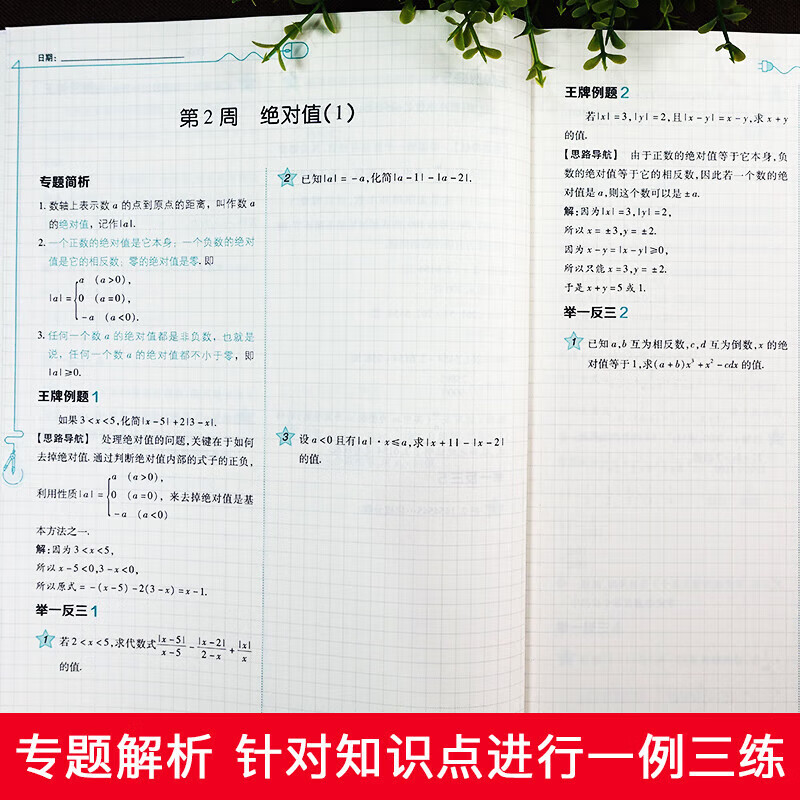 日期:
第2周 绝对值(1)
专题简析
1. 数轴上表示数 a 的点到原点的距离,叫作数 a
的绝对值,记作|a|.
2. 一个正数的绝对值是它本身;一个负数的绝对
值是它的相反数;零的绝对值是零. 即
a (a>0),
|a|={0 (a=0),
-a (a<0).
3. 任何一个数 a 的绝对值都是非负数,也就是
说,任何一个数 a 的绝对值都不小于零,即
|a|≥0.
王牌例题1
如果3<x<5,化简|x-5|+2|3-x|.
【思路导航】 处理绝对值的问题,关键在于如何
去掉绝对值. 通过判断绝对值内部的式子的正负,
a (a>0),
利用性质|a|={0 (a=0), 来去掉绝对值是基
-a (a<0)
本方法之一.
解:因为3<x<5,
所以x-5<0,3-x<0,
所以原式=-(x-5)-2(3-x)=x-1.
举一反三1
1 若2<x<5,求代数式|x-5|/x-5-|x-2|/2-x+|x|/x
的值.
2 已知|a|=-a,化简|a-1|-|a-2|.
3 设a<0且有|a|·x≤a,求|x+1|-|x-2|
的值.
王牌例题2
若|x|=3,|y|=2,且|x-y|=x-y,求x+y
的值.
【思路导航】 由于正数的绝对值等于它本身,负
数的绝对值等于它的相反数,因此若一个数的绝
对值是a,则这个数可以是±a.
解:因为|x|=3,|y|=2,
所以x=±3,y=±2.
因为x-y=|x-y|≥0,
所以只能x=3,y=±2.
于是x+y=5或1.
举一反三2
1 已知a,b互为相反数,c,d互为倒数,x的绝
对值等于1,求(a+b)x³+x²-cdx的值.
专题解析 针对知识点进行一例三练